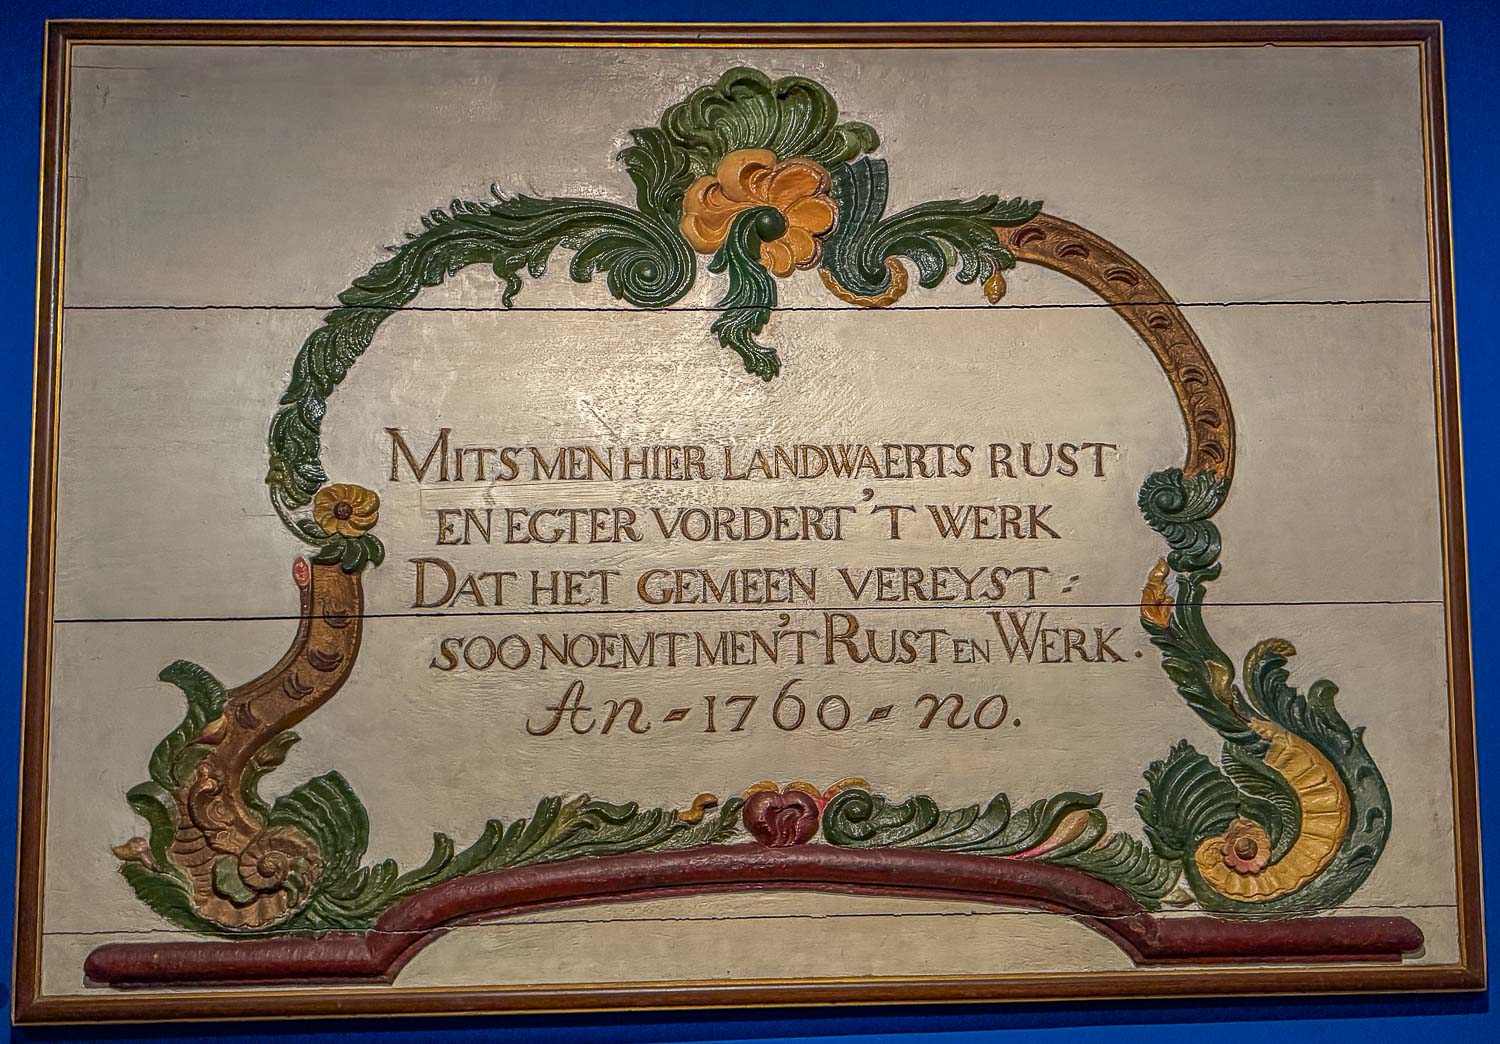 MITS MEN HIER LANDWAERTS RUST
EN EGTER VORDERT 'T WERK
DAT HET GEMEEN VEREYST -
SOO NOEMT MEN 'T RUST EN WERK.
An - 1760 - no.